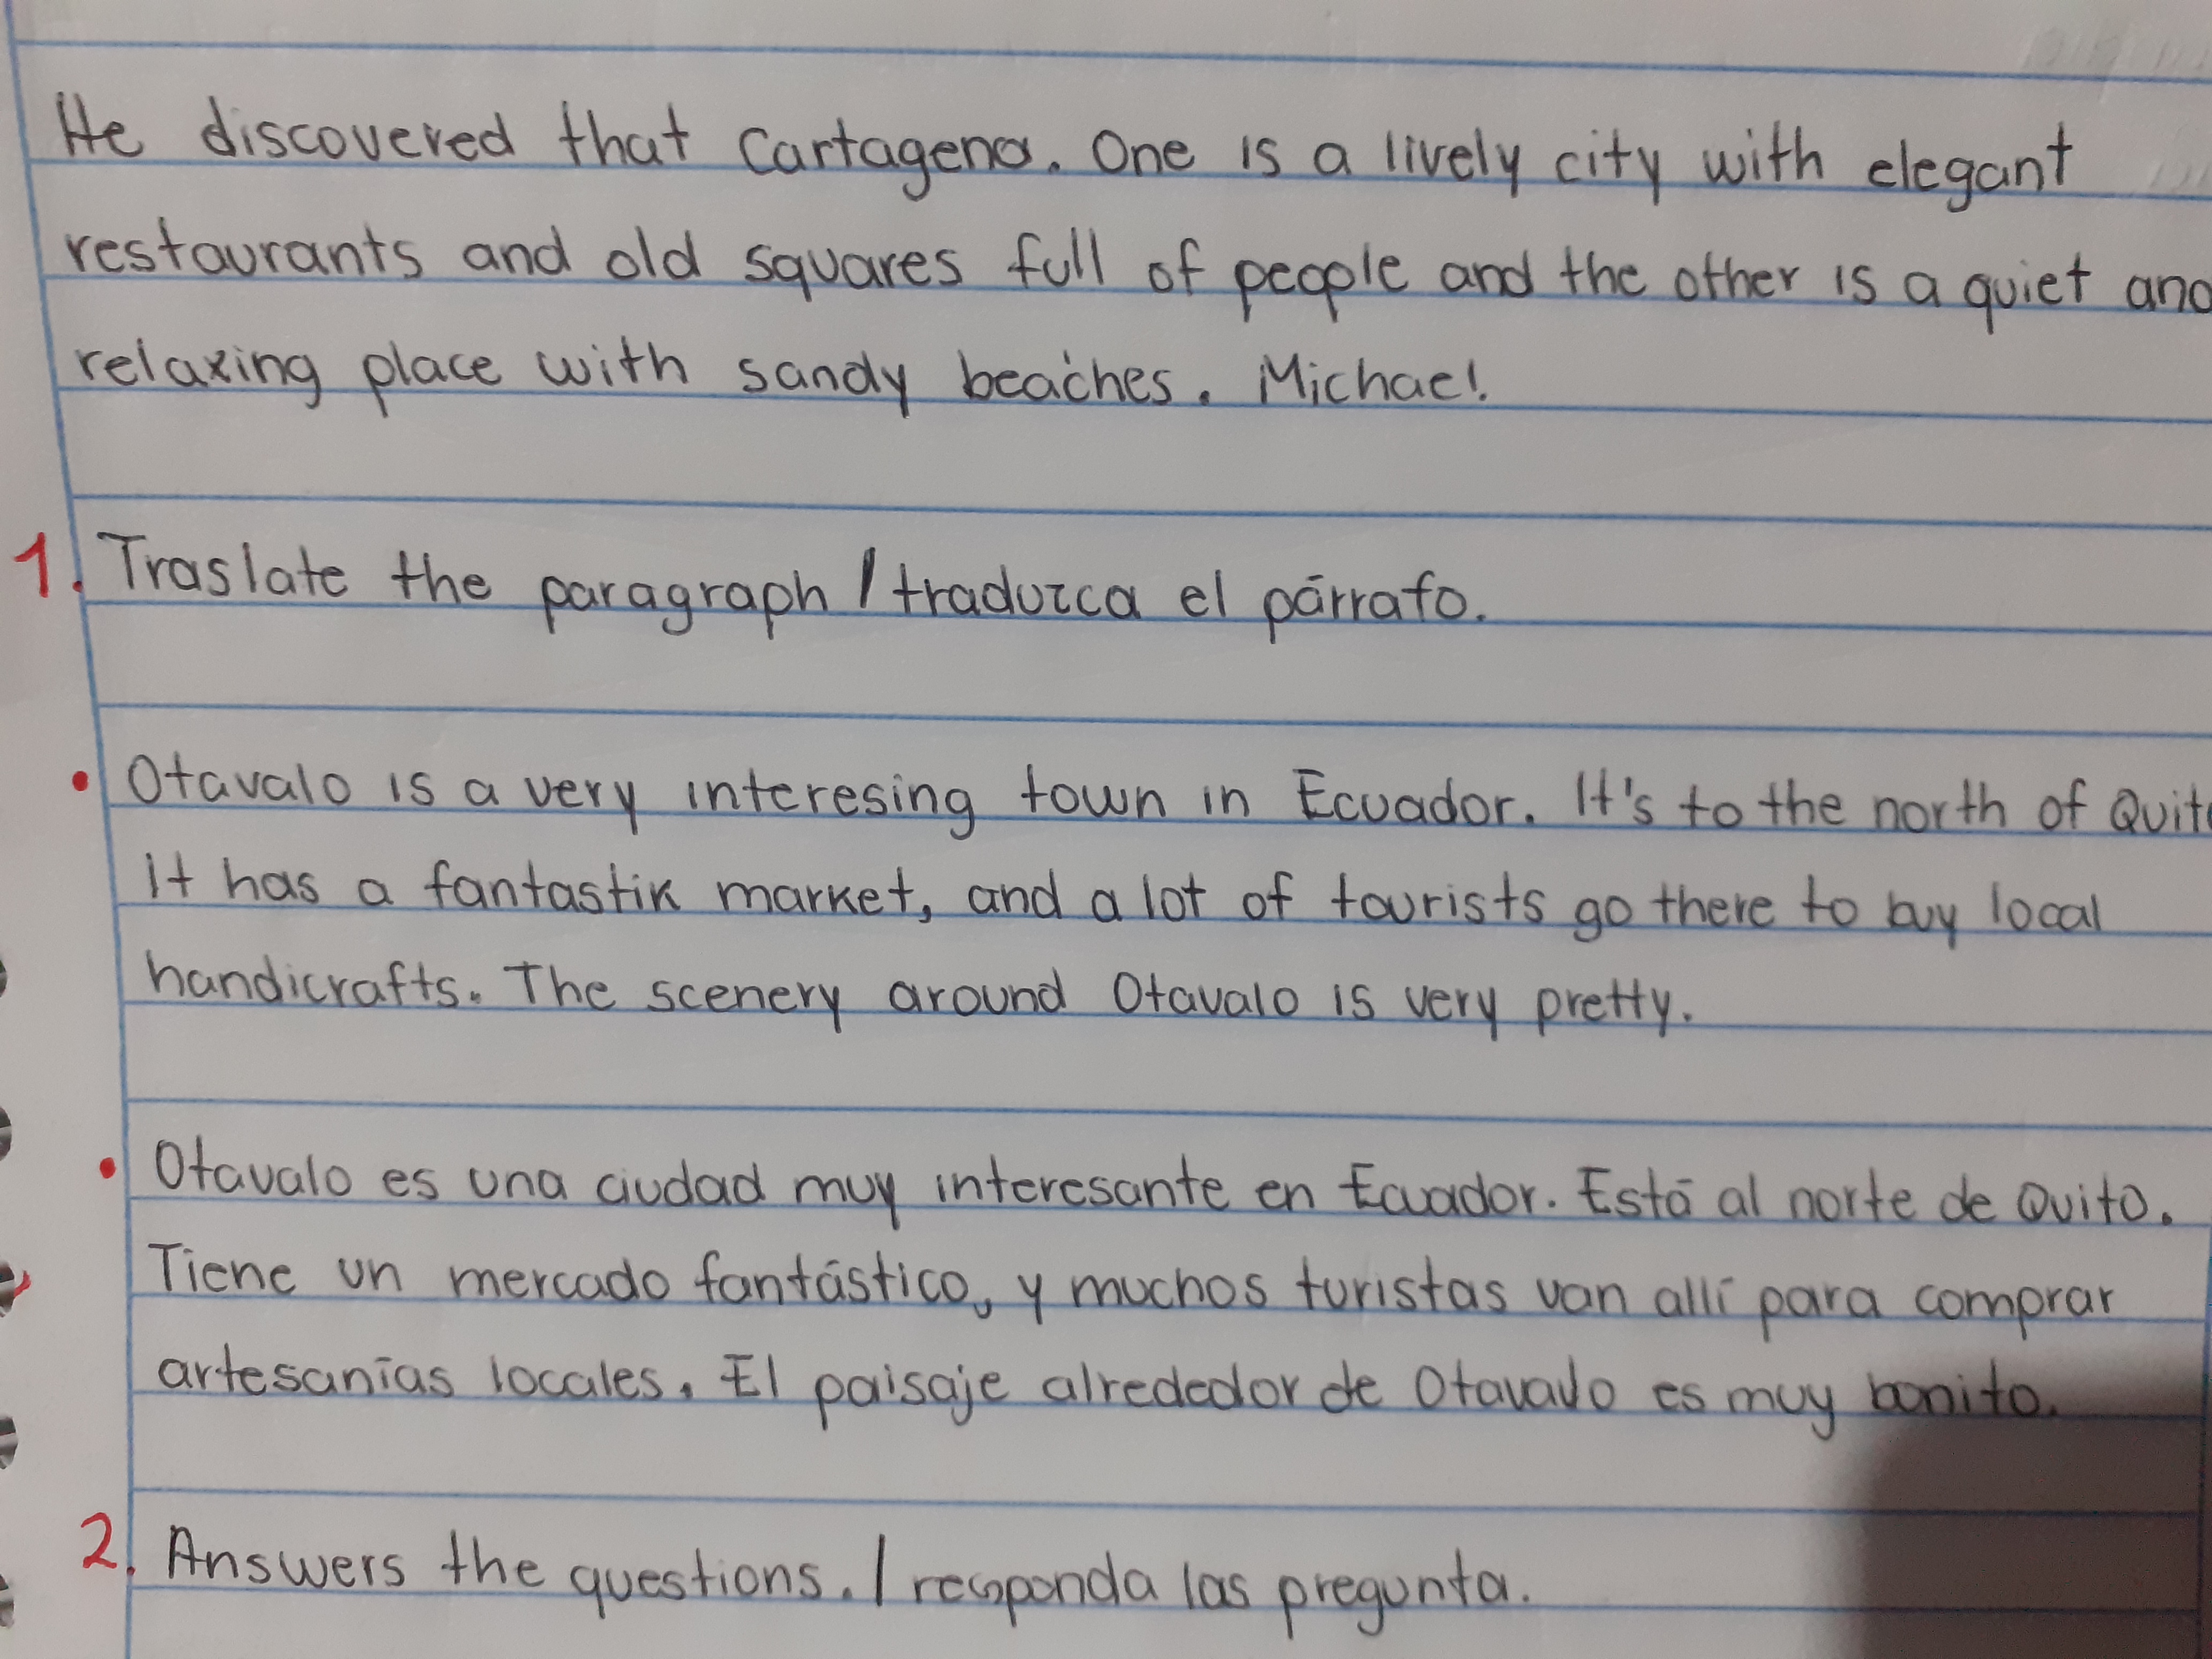 He discovered that Cartagena. One is a lively city with elegant
restaurants and old squares full of people and the other is a quiet and
relaxing place with sandy beaches. Michael.
1. Traslate the paragraph / traduzca el párrafo.
• Otavalo is a very interesing town in Ecuador. It's to the north of Quito
It has a fantastik market, and a lot of tourists go there to buy local
handicrafts. The scenery around Otavalo is very pretty.
• Otavalo es una ciudad muy interesante en Ecuador. Está al norte de Quito.
Tiene un mercado fantástico, y muchos turistas van allí para comprar
artesanías locales. El paisaje alrededor de Otavalo es muy bonito.
2. Answers the questions. / responda las pregunta.